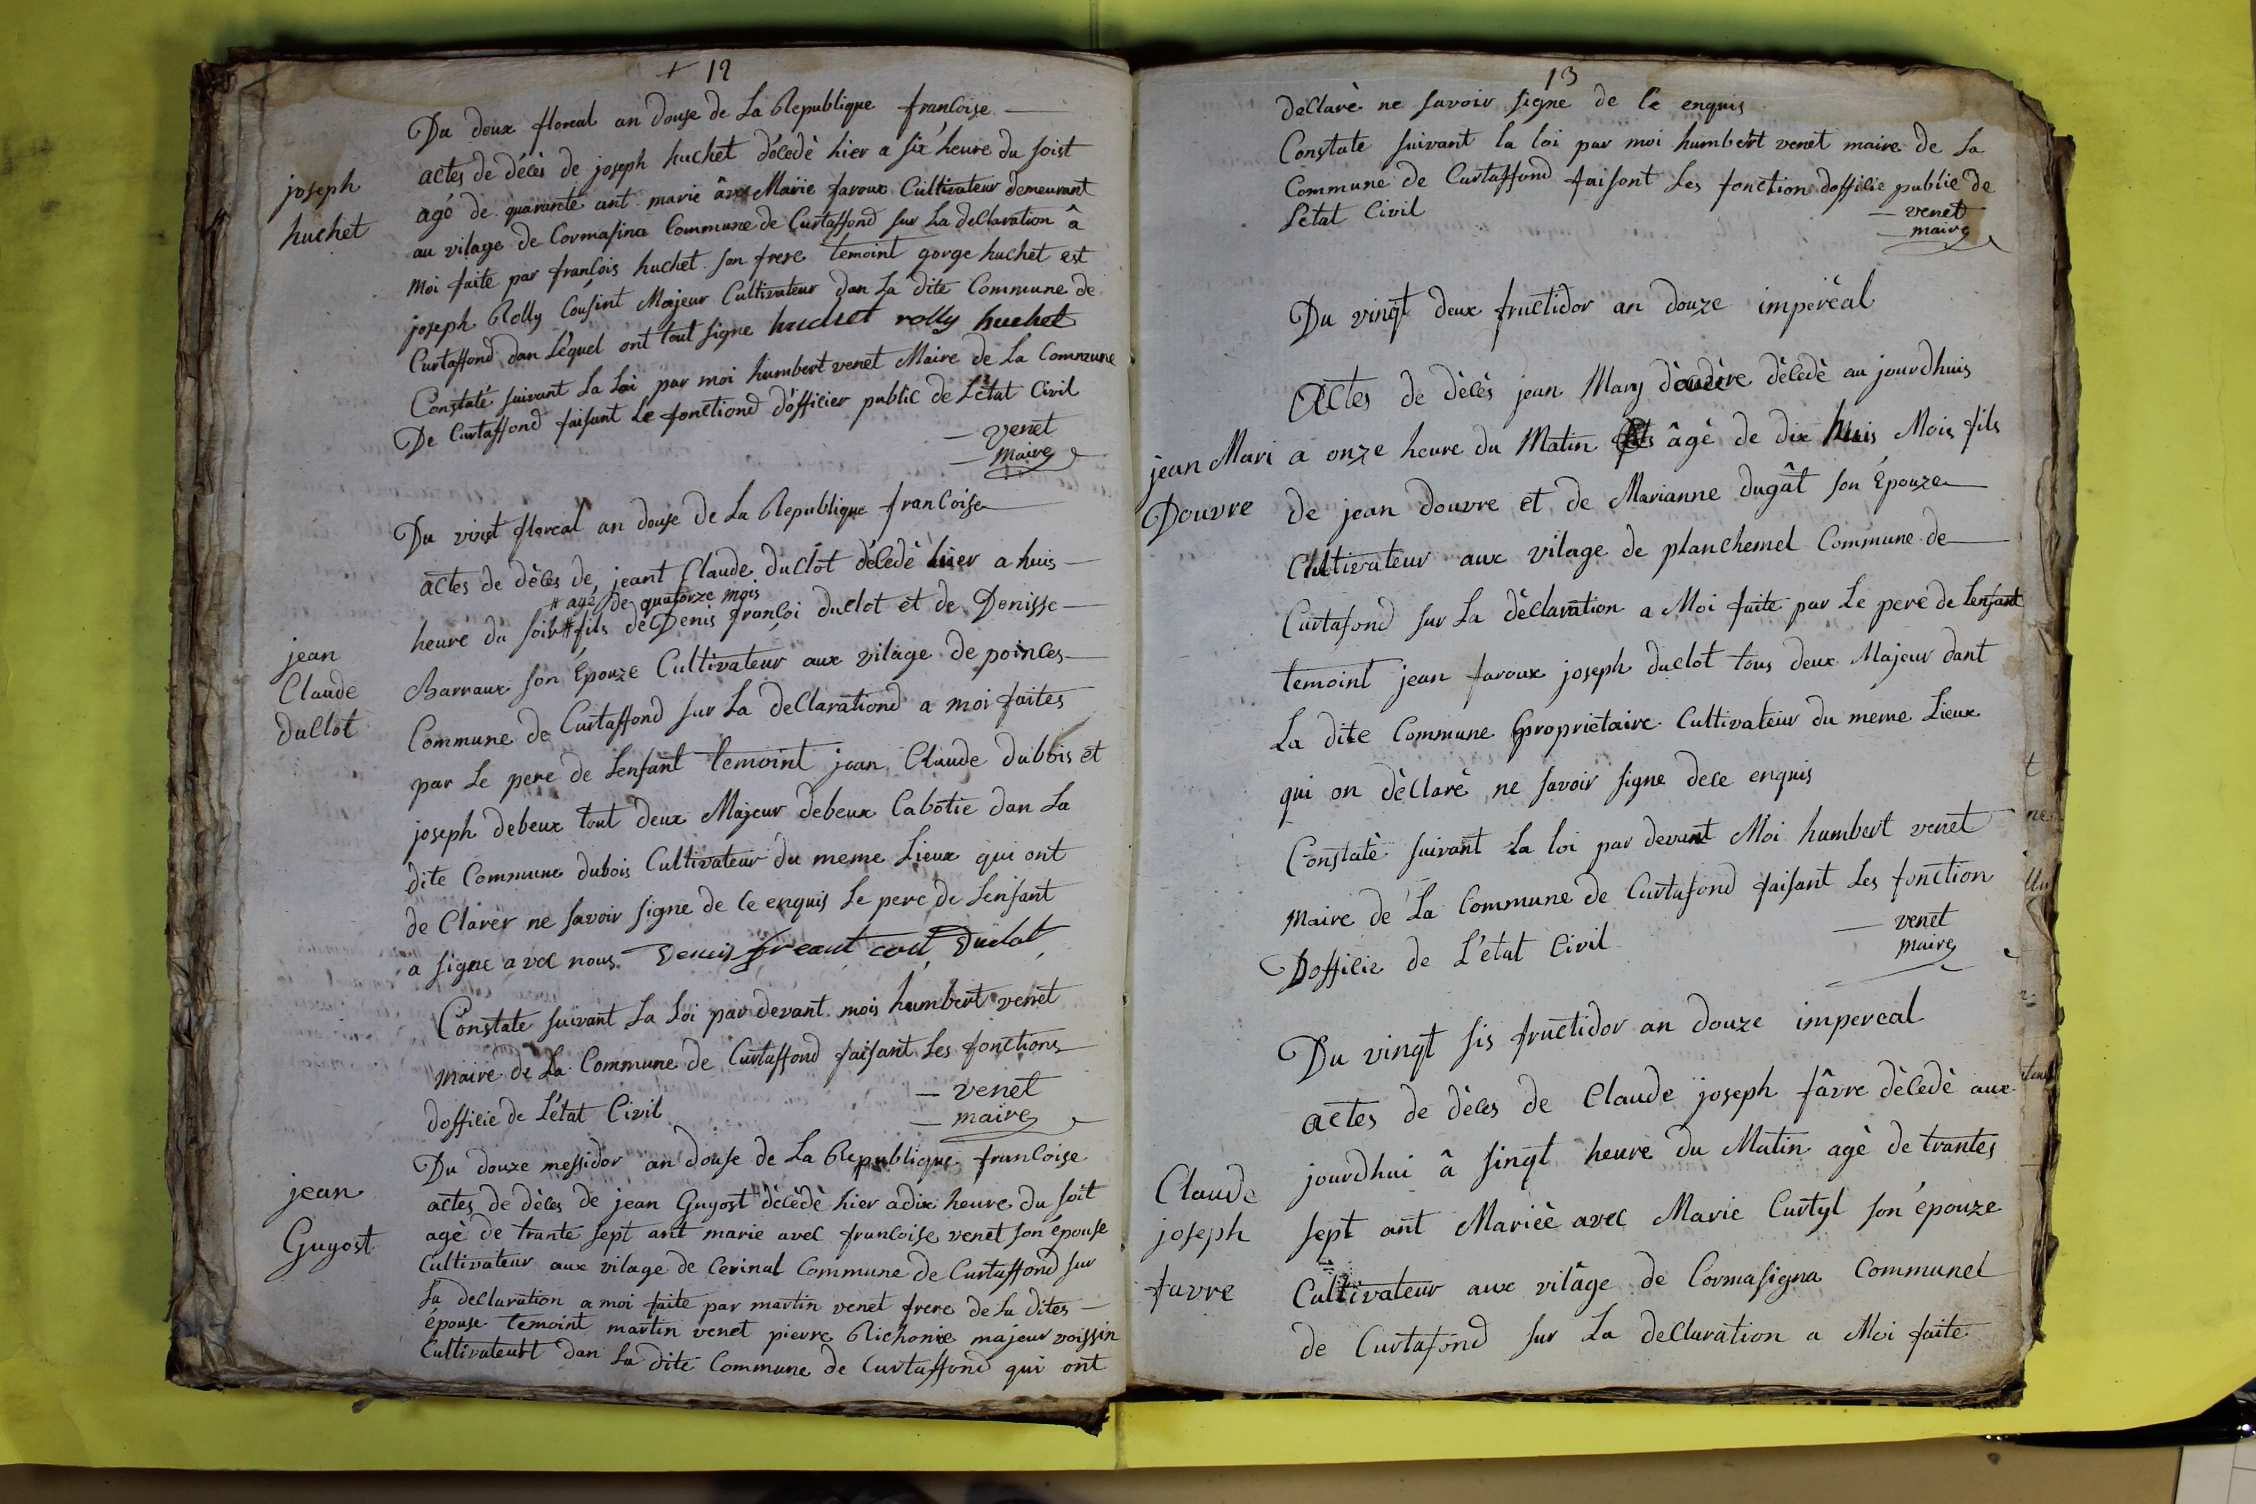 12
Du doux floreal an douse de La Republique francoise
actes de décès de joseph huchet décedè hier a six heure du soist
joseph
huchet
agé de quarante ant marie âvec Mariie faroux Cultivateur demeurant
au vilage de Cormasina Commune de Curtaffond sur La declaration â
Moi faite par francois huchet son frere temoint gorge huchet est
joseph Rolly Cousint Majeur Cultivateur dan La dite Commune de
Curtaffond dan Léquel ont tout signe huchet rolly huchet
Constaté suivant La Loi par moi humbert venet Maire de La Commune
De Curtaffond faisant Le fonctiond dofficier public de Létat Civil
venet
maire
Du vint floreal an douse de La Republique francoise
actes de dèces de jeant Claude duclot décedè hier a huis
# agé de quatorze mois
heure du soir # fils de Denis francoi duclot et de Denisse
jean
Claude
duclot
Barraux son Épouze Cultivateur aux vilage de poinces
Commune de Curtaffond sur La declarationd a moi faites
par Le pere de Lenfant temoint jean Claude dubbis et
joseph debeux tout deux Majeur debeux Cabotie dan La
dite Commune dubois Cultivateur du meme Lieux qui ont
de Clarer ne savoir signe de ce enquis Le pere de Lenfant
a signe avec nous Denis Duclot
Constate suivant La Loi pardevant mois humbert venet
maire de La Commune de Curtaffond faisant Les fonctions
dofficie de Létat Civil
venet
maire
Du douze messidor an douse de La Republique francoise
jean
Guyost
actes de dèces de jean Guyost dècèdè hier a dix heure du soit
agè de trante sept ant marie avec francoise venet son épouse
Cultivateur aux vilage de Cevinal Commune de Curtaffond sur
La declaration a moi faite par martin venet frere de La dites
épouse temoint martin venet pierre Richonie majeur voissin
Cultivateurt dan La dite Commune de Curtaffond qui ont
13
declarè ne savoir signe de ce enquis
Constate suivant la loi par moi humbert venet maire de La
Commune de Curtaffond faisont Les fonction dofficie publie de
Létat Civil
venet
maire
Du vingt deux fructidor an douze imperèal
Actes de dècès jean Mary dècedè au jourdhuis
jean Mari
Douvre
a onze heure du Matin âgè de dix huis Mois fils
de jean douvre et de Marianne dugât son Épouze
Cultivateur aux vilage de planchemel Commune de
Curtafond sur La dèclaration a Moi faite par Le pere de Lenfant
temoint jean faroux joseph duclot tous deux Majeur dant
La dite Commune propriètaire Cultivateur du même Lieux
qui on dèclarè ne savoir signe de ce enquis
Constatè suivant La loi par devant Moi humbert venet
Maire de La Commune de Curtafond faisant Les fonction
Dofficie de L'etat Civil
venet
maire
Du vingt sis fructidor an douze impereal
actes de dèces de Claude joseph fâvre dècedè aux
Claude
joseph
favre
jourdhui â singt heure du Matin agè de trantes
sept ant Marièè avec Marie Curtyl son épouze
Cultivateur aux vilâge de Cormasigna Communel
de Curtafond sur La declaration a Moi faite